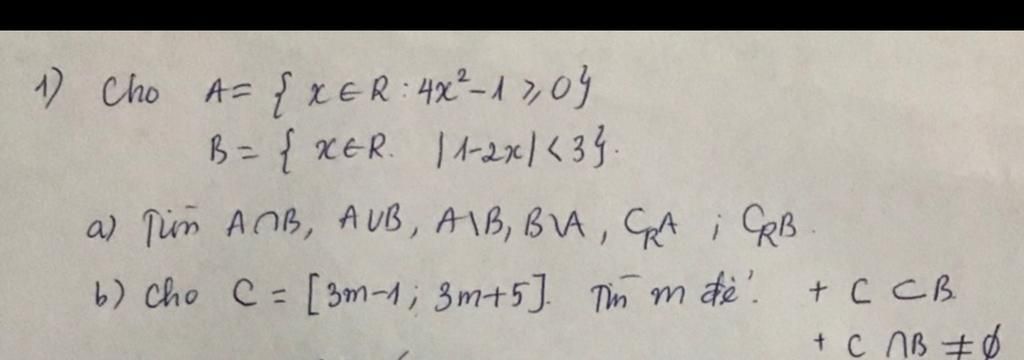 1) Cho A = { x ∈ R : 4x² - 1 ⩾ 0 }
B = { x ∈ R. |1-2x| < 3 }.
a) Tìm A∩B, A∪B, A\B, B\A, C_R A ; C_R B.
b) Cho C = [3m-1; 3m+5]. Tìm m để: + C ⊂ B.
+ C ∩ B ≠ ∅